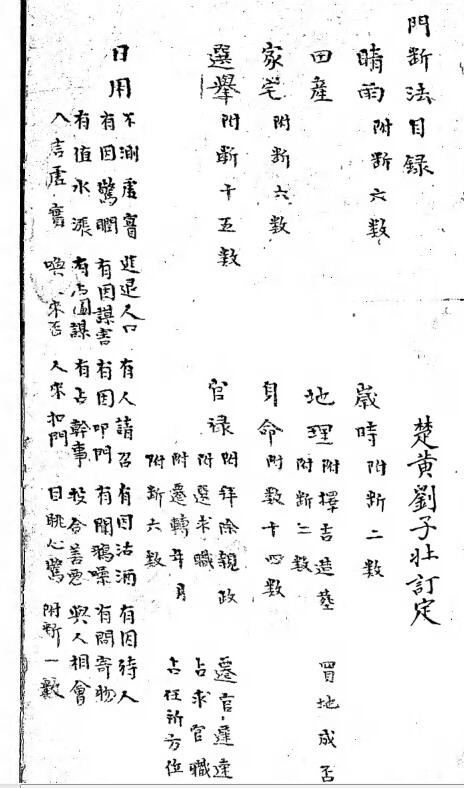 門斷法目録
楚黄劉子壯訂定
晴雨 附断六数
歲時 附断二数
田產
地理 附擇吉造塟 買地成否
附断二数
家宅 附断六数
身命 附数十四数
選舉 附斷十五数
官禄 附拜除親政 遷官遲速
附選求職 占求官職
附遷轉年月 占任所方位
附断六数
日用
不測虛實 進退人口 有人請召 有因沽酒 有因待人
有因驚 有因謀害 有因叩門 有聞鴉噪 有問寄物
有值水漲 有占圖謀 有占幹事 投合善惡 與人相會
入言虛實 喚人來否 人來扣門 目眺心驚 附断一數